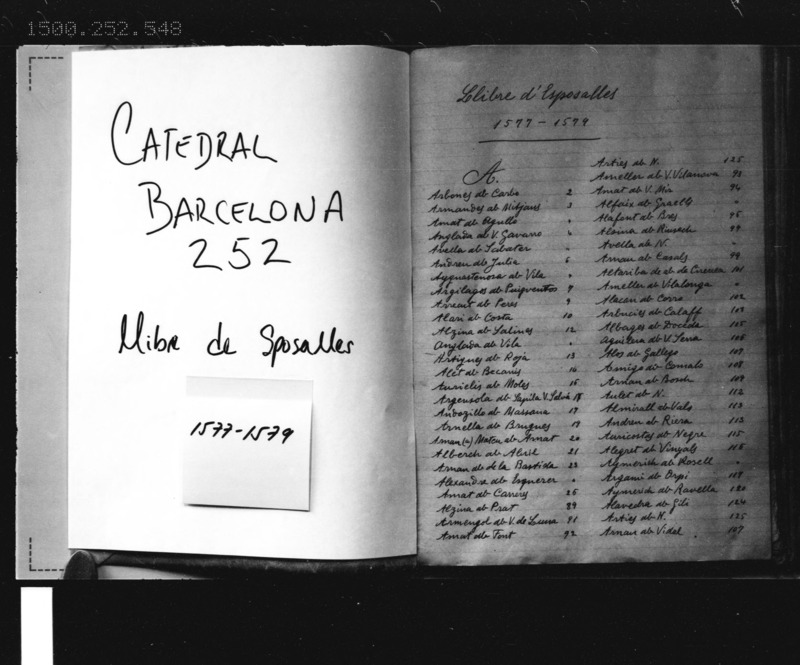 1500.252.548
CATEDRAL
BARCELONA
252
Llibre de Sposalles
1577-1579
Llibre d'Esposalles
1577-1579
A.
Arbones ab Carbo 2
Armandes ab Mitjans 3
Amat ab Agullo "
Anglada ab V. Gavarro 4
Avella ab Sabater "
Andreu ab Julia 6
Ayguastenosa ab Vila "
Argilages ab Puigventos 7
Arecart ab Peres 9
Alari ab Costa 10
Alzina ab Salines 12
Anglada ab Vila "
Artigues ab Roja 13
Alet ab Becanis 14
Aurielis ab Moles 15
Argensola ab V. Salvà 15
ab Massana 17
Arnella ab Brugues 19
Aman(a) Mateu ab Amat 20
Alberch ab Abril 21
Aman ab de la Bastida 23
Alexandre ab Esquerer "
Amat ab Carrery 25
Alzina ab Prat 89
Armengol ab V. de Luna 91
Amat ab Font 92
Arties ab N. 125
Ameller ab V. Vilanova 93
Amat ab V. Mir 94
Alfaix ab Graells "
Alafont ab Bres 95
Aloina ab Ruisech 99
Avella ab N. "
Arnau ab Casals 99
Altariba de ab de Cuenca 101
Ameller ab Vilalonga "
Alacen ab Corro 102
Arbucies ab Calaff 103
Albages ab Doceda 105
Aguilera ab V. Serra 106
Alos ab Gallego 107
Amigo ab Comalo 108
Arnau ab Bosch 109
Aulet ab N. 112
Almirall ab Vals 113
Andreu ab Riera 113
Auricostes ab Negre 115
Alegret ab Vinyals 118
Aymerich ab Rosell "
Argemi ab Orpi 119
Aymerich ab Ravella 120
Alavedra ab Gili 124
Arties ab N. 125
Arnau ab Vidal 107